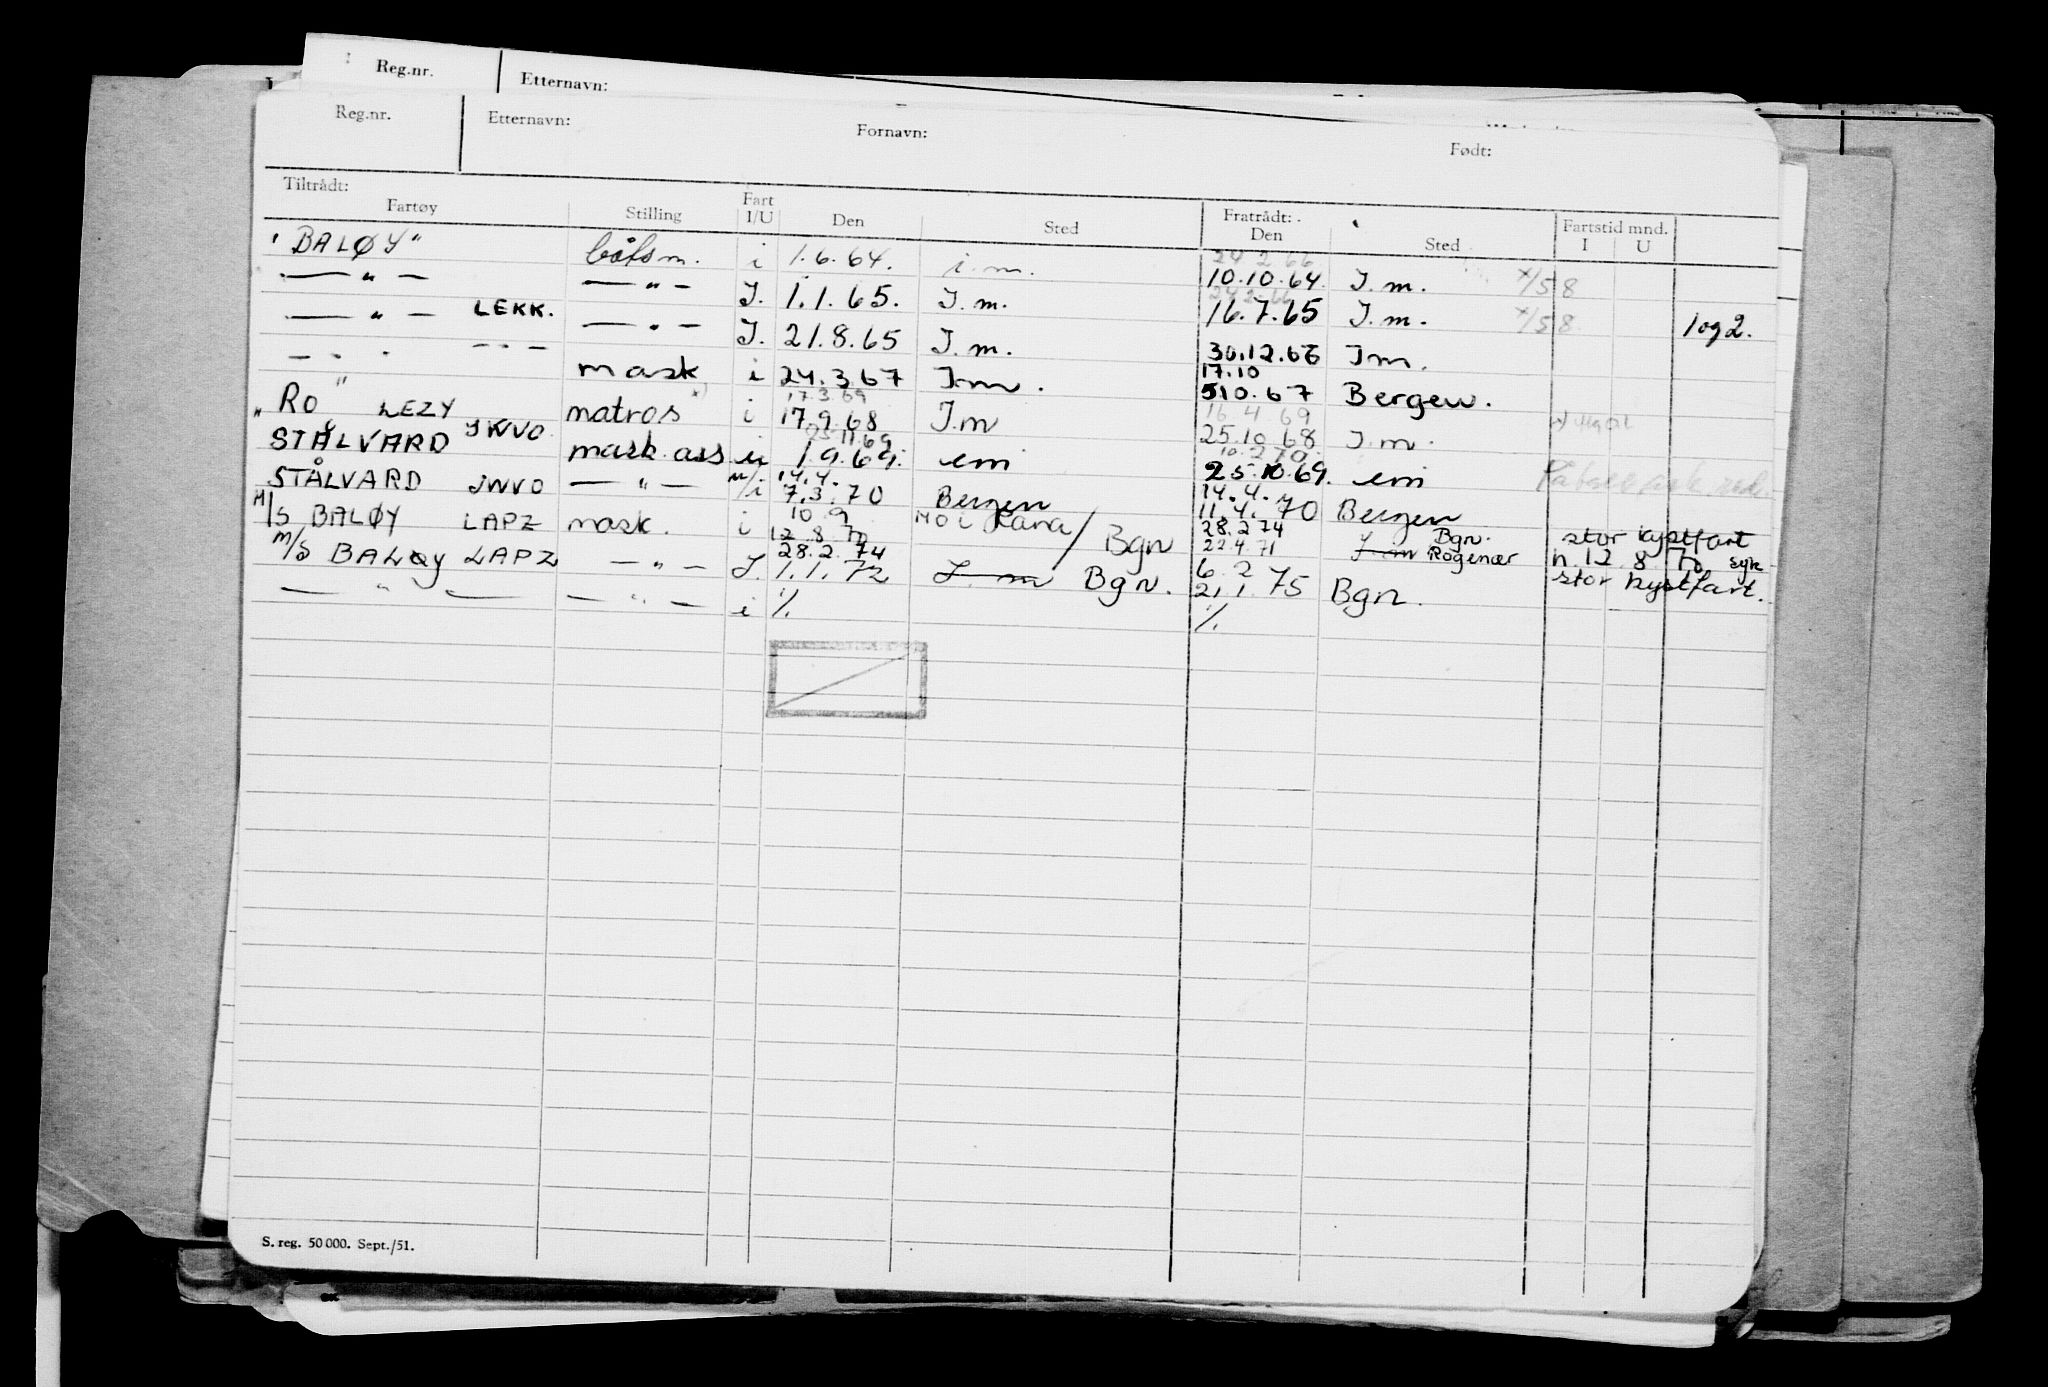 Reg.nr. Etternavn:
Reg.nr. Etternavn: Fornavn: Født:
Tiltrådt: Fartøy Stilling Fart I/U Den Sted Fratrådt: Den Sted Fartstid mnd. I U
"BALØY" båtsm. i 1.6.64. i.m. 24 2 66 10.10.64 I.m. x/58
— " — — " — I. 1.1.65. I.m. 16.7.65 I.m. x/58 1og2.
— " — LEKK. — " — I. 21.8.65 I.m. 30.12.66 Im.
— " — — " — mask i 24.3.67 Im. 17.10 510.67 Bergen.
"RO" LEZY matros i 17.3.69 17.9.68 I.m 16.4 69 25.10 68 I.m.
STÅLVARD JWVO mask.ass u 25.11.69 1.9.69. emi 10.2 70. 25.10.69. emi
STÅLVARD JWVO — " — u/i 14.4. 7.3.70 Bergen 14.4. 11.4.70 Bergen
M/S BALØY LAPZ mask. i 10.9 12.8.70 Mo i Rana / Bgn 28.2 74 22.4.71 I.m Bgn. Rogenær stor kystfart n.12.8.70 syk
M/S BALØY LAPZ — " — I. 28.2.74 1.1.72 I.m Bgn. 6.2 2.1.75 Bgn. stor kystfart.
— " — — " — i %. %.
S. reg. 50 000. Sept./51.